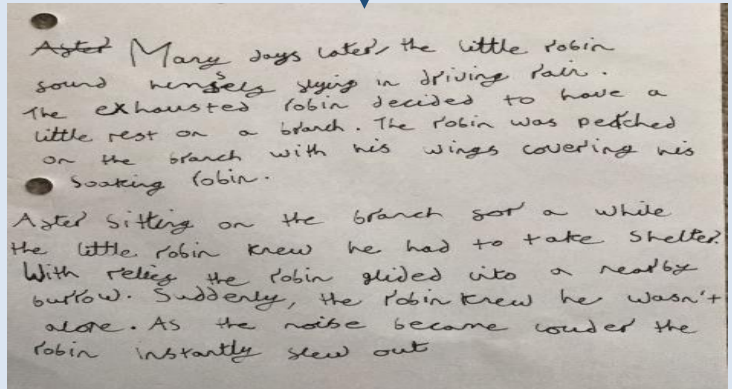 After Many days later, the little robin
found himself flying in driving rain.
The exhausted robin decided to have a
little rest on a branch. The robin was perched
on the branch with his wings covering his
soaking robin.
After sitting on the branch for a while
the little robin knew he had to take shelter.
With relief the robin glided into a nearby
burrow. Suddenly, the robin knew he wasn't
alone. As the noise became louder the
robin instantly flew out